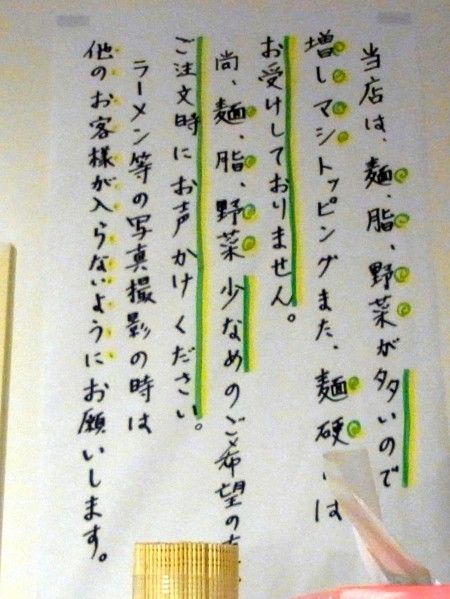 当店は、麺、脂、野菜が多いので
増しマシトッピングまた、麺硬は
お受けしておりません。
尚、麺、脂、野菜少なめのご希望の
ご注文時にお声かけください。
ラーメン等の写真撮影の時は
他のお客様が入らないようにお願いします。